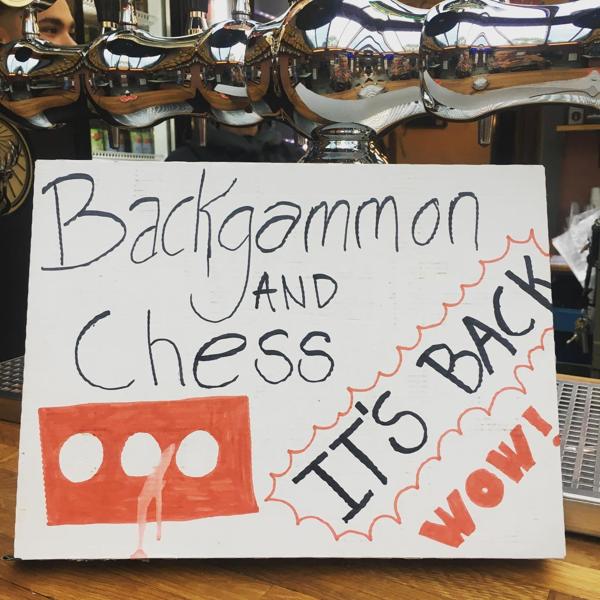 Backgammon
AND
Chess
IT'S BACK
WOW!